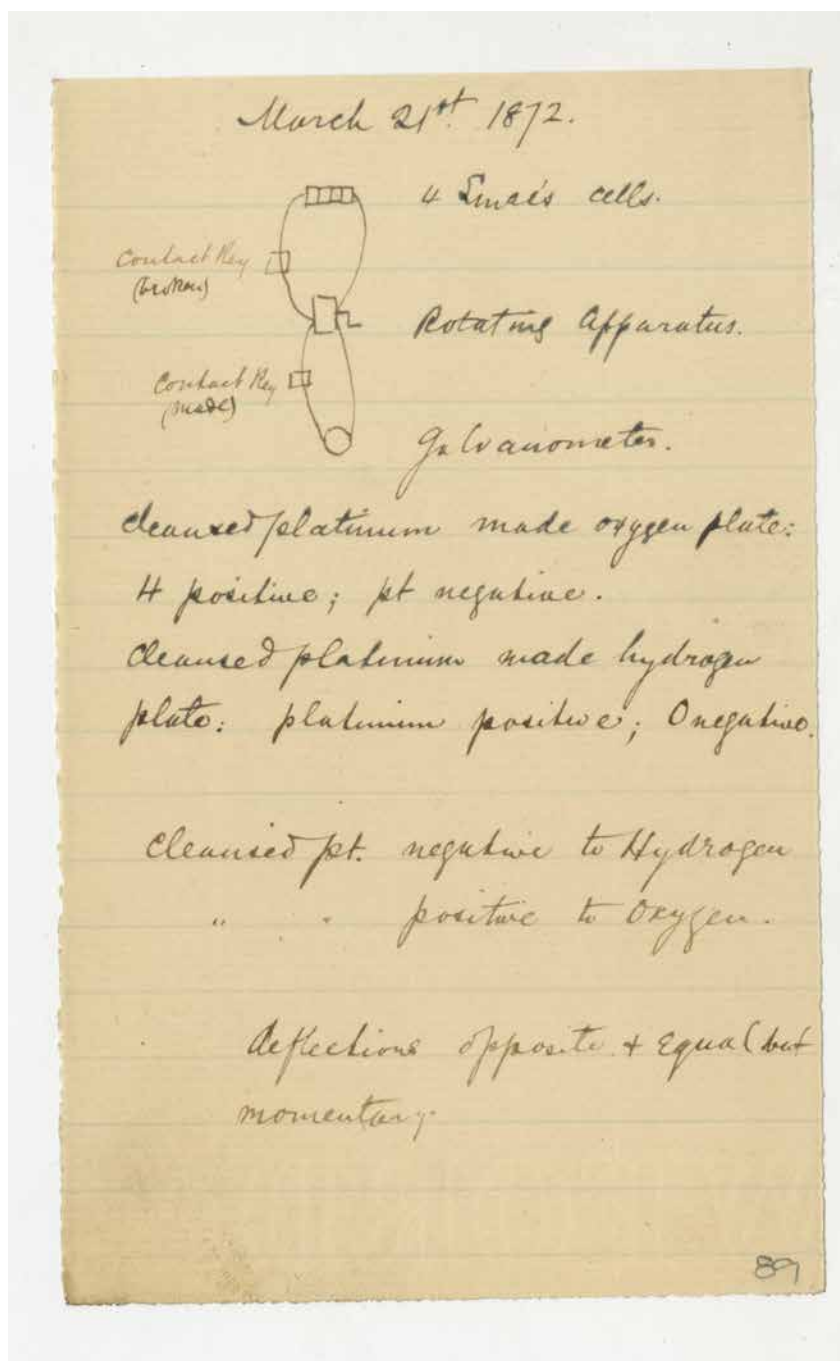 March 21st. 1872.
4 Smee's cells.
Contact Key
(broken)
Rotating Apparatus.
Contact Key
(made)
Galvanometer.
Cleansed platinum made oxygen plate:
H positive; pt negative.
Cleansed platinum made hydrogen
plate: platinum positive; O negative.
Cleansed pt. negative to Hydrogen
" " positive to Oxygen.
deflections opposite + equal (but
momentary.
89